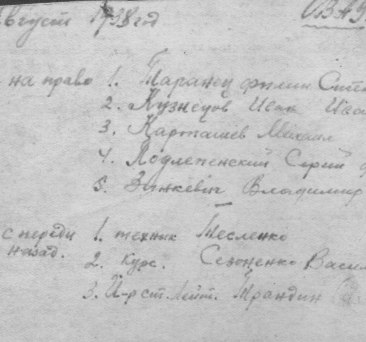 август 1938 год ОВАЗ
на право 1. Таранец филип Степ
2. Кузнецов Исак Ива
3. Карташев Михаил
4. Подлепенский Сергй
5. Зинкевич Владимир
с переди 1. техник Месленко
назад. 2. Курс. Сезоненко Васил
3. И-р ст. Лейт. Трандин